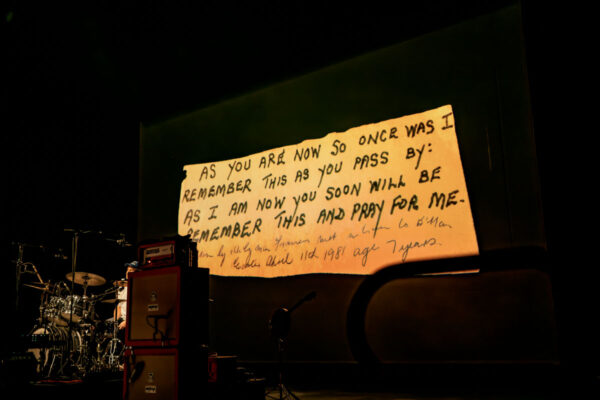 AS YOU ARE NOW SO ONCE WAS I
REMEMBER THIS AS YOU PASS BY:
AS I AM NOW YOU SOON WILL BE
REMEMBER THIS AND PRAY FOR ME.
by
April 11th 1981 age 7 years.